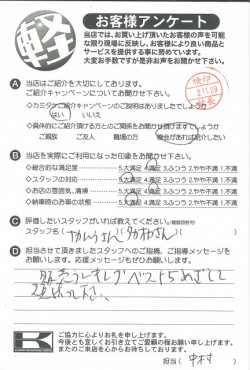 軽
お客様アンケート
当店では、お買い上げ頂いたお客様の声を可能
な限り現場に反映し、お客様により良い商品と
サービスを提供する事に努めています。
大変お手数ですが是非お声をお聞かせ下さい。
A 当店はご紹介を大切にしております。
ご紹介キャンペーンについてお聞かせ下さい
◇カミタケご紹介キャンペーンのご説明はありましたでしょうか
はい いいえ
◇具体的にご紹介頂ける方とのご関係をお聞かせ頂けますでしょうか
ご親族 ご友人 職場の方 機会があれば紹介したい
B 当店を実際にご利用になった印象をお聞かせ下さい
◇総合的な満足度 5.大満足 4.満足 3.ふつう 2.やや不満 1.不満
◇スタッフの対応 5.大満足 4.満足 3.ふつう 2.やや不満 1.不満
◇お店の雰囲気、清潔 5.大満足 4.満足 3.ふつう 2.やや不満 1.不満
◇納車時のお車の状態 5.大満足 4.満足 3.ふつう 2.やや不満 1.不満
C 評価したいスタッフがいれば教えてください。(複数回答可)
スタッフ名(
D 担当させて頂きましたスタッフへのご指摘、ご指導メッセージを
お願いします。応援メッセージもお願いします!
K
ご協力に心よりお礼を申し上げます。
今後とも宜しくお引き立てご愛顧の程お願い申し上げます。
またのご来店を心からお待ちしております。
担当( 中村 )